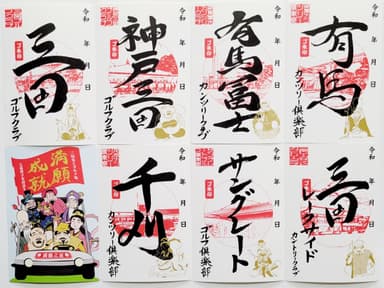 令和 年 月 日
三田
ゴルフクラブ
令和 年 月 日
神戸三田
ゴルフクラブ
令和 年 月 日
有馬冨士
カンツリークラブ
令和 年 月 日
有馬
カンツリー倶楽部
満願
成就
令和 年 月 日
千刈
カンツリー倶楽部
令和 年 月 日
サングレート
ゴルフ倶楽部
令和 年 月 日
三田
レークサイド
カントリークラブ